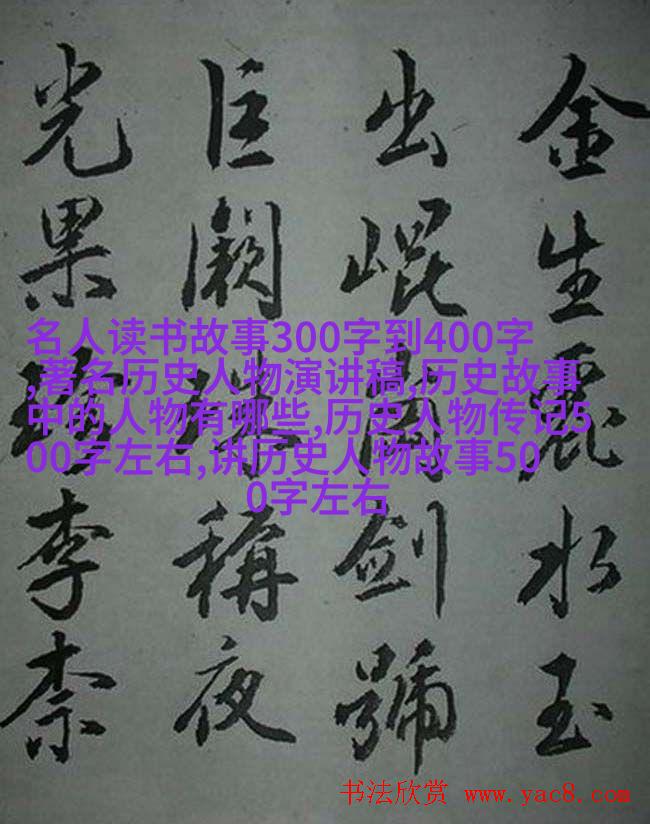 金生麗水玉
出崐岡劍號
巨闕珠稱夜
光果珍李柰
名人读书故事300字到400字
,著名历史人物演讲稿,历史故事
中的人物有哪些,历史人物传记5
00字左右,讲历史人物故事50
0字左右
书法欣赏 www.yac8.com